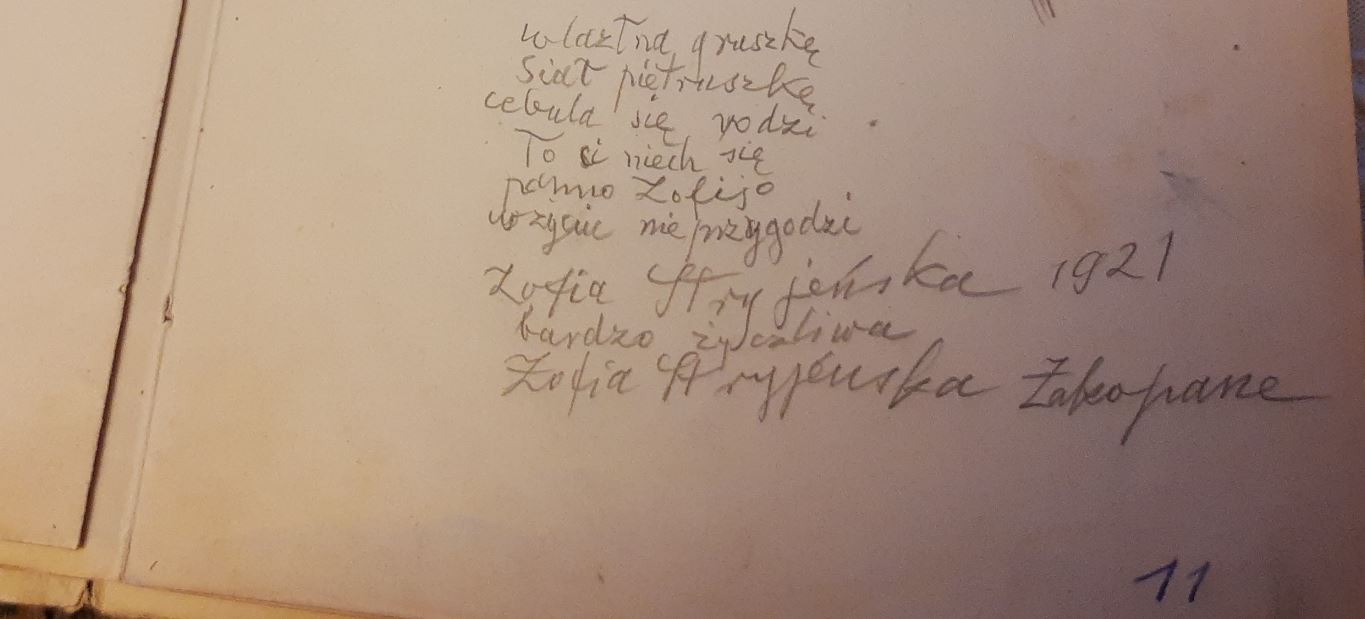 wlazł na gruszkę
Siał piętruszkę
cebula się rodzi
To ci niech się
panno Zofijo
w życiu nie przygodzi
Zofia Stryjeńska 1921
bardzo życzliwa
Zofia Stryjeńska Zakopane
11